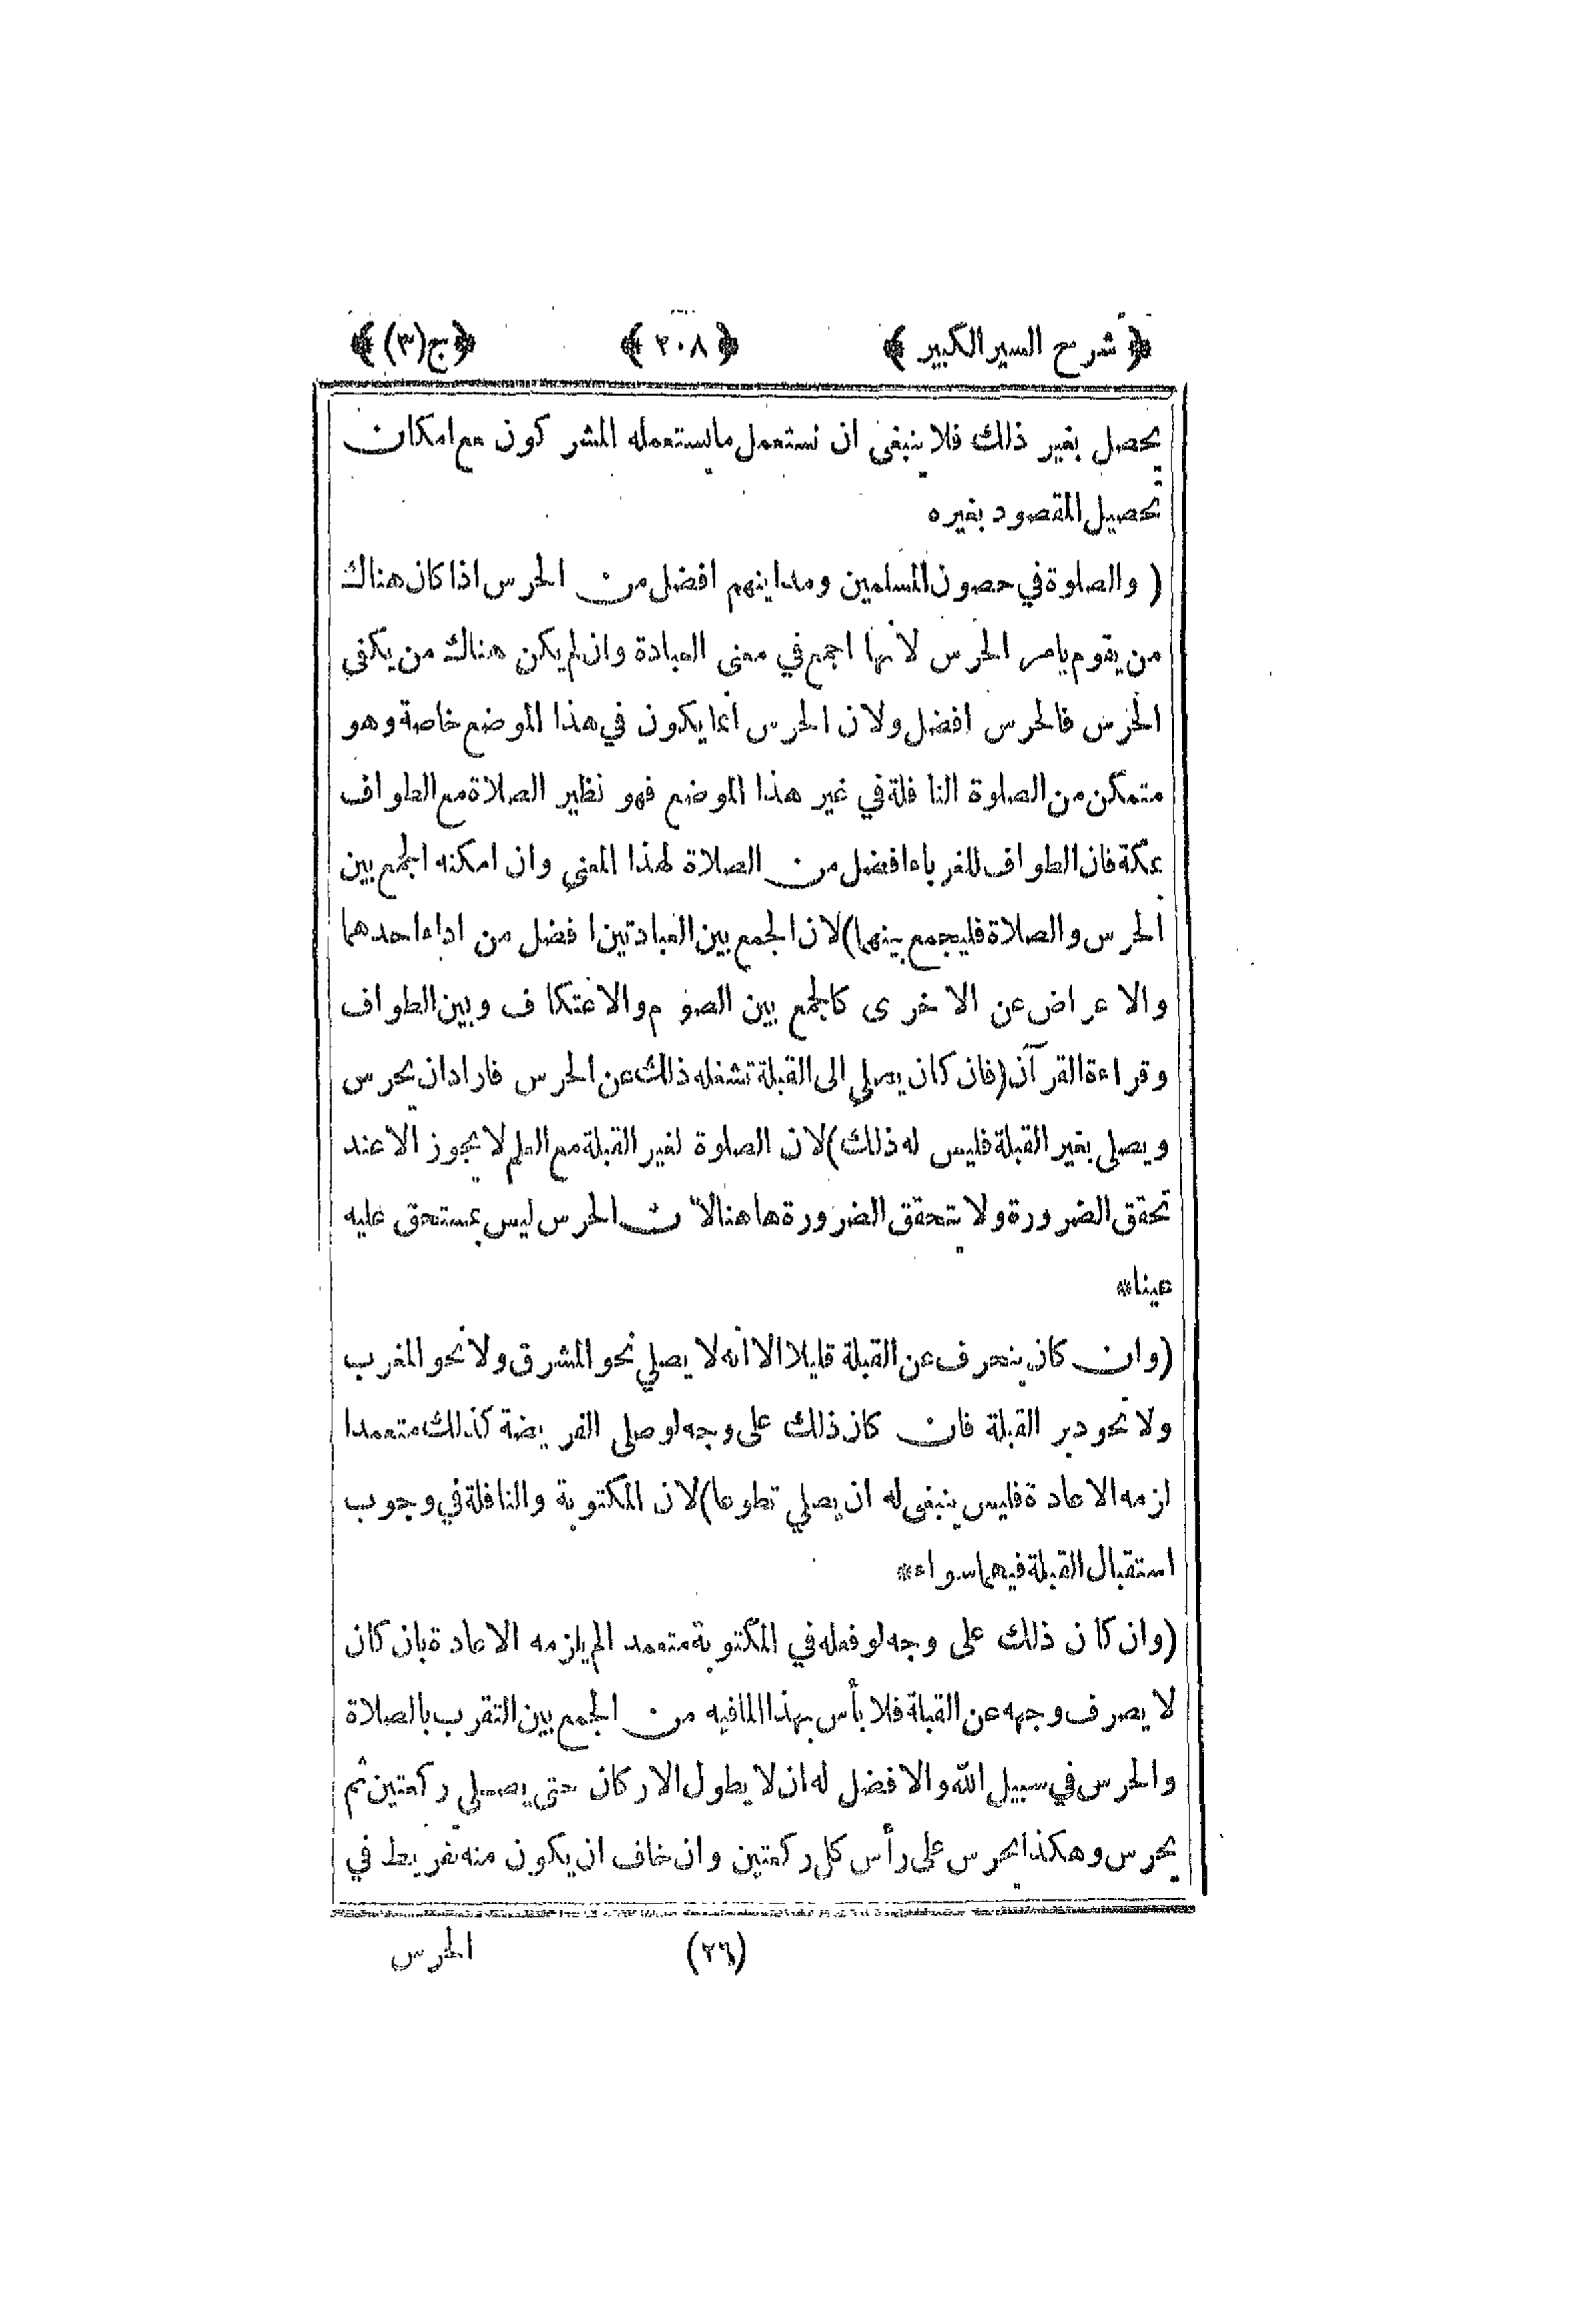 ﴿ شرح السير الكبير ﴾ ﴿ ٢٠٨ ﴾ ﴿ ج(٣) ﴾
يحصل بغير ذلك فلا ينبغى ان نستعمل مايستعمله المشركون مع امكان
تحصيل المقصود بغيره
( والصلوة في حصون المسلمين ومداينهم افضل من الحرس اذا كان هناك
من يقوم بامر الحرس لانها اجمع في معنى العبادة وان لم يكن هناك من يكفي
الحرس فالحرس افضل ولان الحرس انما يكون في هذا الموضع خاصة وهو
متمكن من الصلوة النافلة في غير هذا الموضع فهو نظير الصلاة مع الطواف
بمكة فان الطواف للغرباء افضل من الصلاة لهذا المعنى وان امكنه الجمع بين
الحرس والصلاة فليجمع بينهما) لان الجمع بين العبادتين افضل من اداء احدهما
والاعراض عن الاخرى كالجمع بين الصوم والاعتكاف وبين الطواف
وقراءة القرآن (فان كان يصلي الى القبلة تشغله ذلك عن الحرس فاراد ان يحرس
ويصلى بغير القبلة فليس له ذلك) لان الصلوة لغير القبلة مع العلم لا يجوز الا عند
تحقق الضرورة ولا تتحقق الضرورة هاهنا لان الحرس ليس بمستحق عليه
عينا*
(وان كان ينحرف عن القبلة قليلا الا انه لا يصلي نحو المشرق ولا نحو المغرب
ولا نحو دبر القبلة فان كان ذلك على وجه لو صلى الفريضة كذلك متعمدا
لزمه الاعادة فليس ينبغى له ان يصلي تطوعا) لان المكتوبة والنافلة في وجوب
استقبال القبلة فيهما سواء*
(وان كان ذلك على وجه لو فعله في المكتوبة متعمدا لم يلزمه الاعادة بان كان
لا يصرف وجهه عن القبلة فلا بأس بهذا لما فيه من الجمع بين التقرب بالصلاة
والحرس في سبيل الله والافضل له ان لا يطول الاركان حتى يصلي ركعتين ثم
يحرس وهكذا يحرس على رأس كل ركعتين وان خاف ان يكون منه تفريط في
(٢٦) الحرس